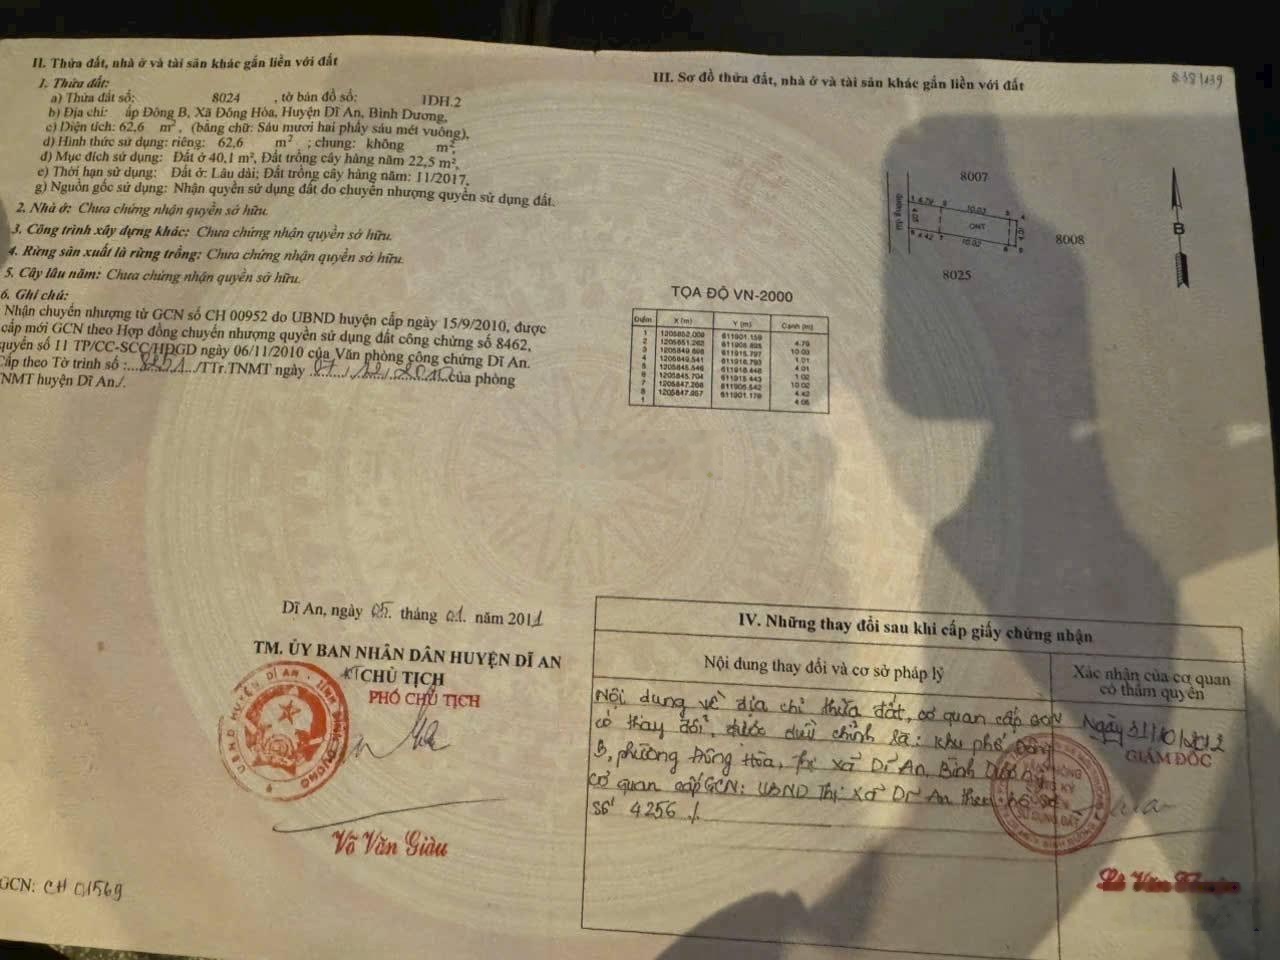 II. Thửa đất, nhà ở và tài sản khác gắn liền với đất
1. Thửa đất:
a) Thửa đất số: 8024 , tờ bản đồ số: 1DH.2
b) Địa chỉ: ấp Đông B, Xã Đông Hòa, Huyện Dĩ An, Bình Dương,
c) Diện tích: 62,6 m², (bằng chữ: Sáu mươi hai phẩy sáu mét vuông),
d) Hình thức sử dụng: riêng: 62,6 m² ; chung: không m²,
đ) Mục đích sử dụng: Đất ở 40,1 m², Đất trồng cây hàng năm 22,5 m²,
e) Thời hạn sử dụng: Đất ở: Lâu dài; Đất trồng cây hàng năm: 11/2017,
g) Nguồn gốc sử dụng: Nhận quyền sử dụng đất do chuyển nhượng quyền sử dụng đất.
2. Nhà ở: Chưa chứng nhận quyền sở hữu.
3. Công trình xây dựng khác: Chưa chứng nhận quyền sở hữu.
4. Rừng sản xuất là rừng trồng: Chưa chứng nhận quyền sở hữu.
5. Cây lâu năm: Chưa chứng nhận quyền sở hữu.
6. Ghi chú:
Nhận chuyển nhượng từ GCN số CH 00952 do UBND huyện cấp ngày 15/9/2010, được
cấp mới GCN theo Hợp đồng chuyển nhượng quyền sử dụng đất công chứng số 8462,
quyển số 11 TP/CC-SCC/HĐGD ngày 06/11/2010 của Văn phòng công chứng Dĩ An.
Cấp theo Tờ trình số : /TTr.TNMT ngày của phòng
TNMT huyện Dĩ An./.
III. Sơ đồ thửa đất, nhà ở và tài sản khác gắn liền với đất
8007
đường đất
ONT
8008
8025
B
TỌA ĐỘ VN-2000
Điểm X (m) Y (m) Cạnh (m)
1 1205852.009 611901.159
2 4.79
3 10.03
4 1.01
5 4.01
6 1.02
7 10.02
8 4.42
1 4.05
Dĩ An, ngày 05. tháng 01. năm 2011
TM. ỦY BAN NHÂN DÂN HUYỆN DĨ AN
KT CHỦ TỊCH
PHÓ CHỦ TỊCH
U.B.N.D HUYỆN DĨ AN - TỈNH BÌNH DƯƠNG
Võ Văn Giàu
GCN: CH 01569
IV. Những thay đổi sau khi cấp giấy chứng nhận
Nội dung thay đổi và cơ sở pháp lý
Xác nhận của cơ quan
có thẩm quyền
Nội dung về địa chỉ thửa đất, cơ quan cấp GCN
có thay đổi, được điều chỉnh là: Khu phố Đông
B, phường Đông Hòa, Thị xã Dĩ An, Bình Dương
Cơ quan cấp GCN: UBND Thị xã Dĩ An theo hồ sơ
Số 4256 /.
Ngày 31/10/2012
GIÁM ĐỐC
VĂN PHÒNG
ĐĂNG KÝ
QUYỀN
SỬ DỤNG ĐẤT
Lê Văn